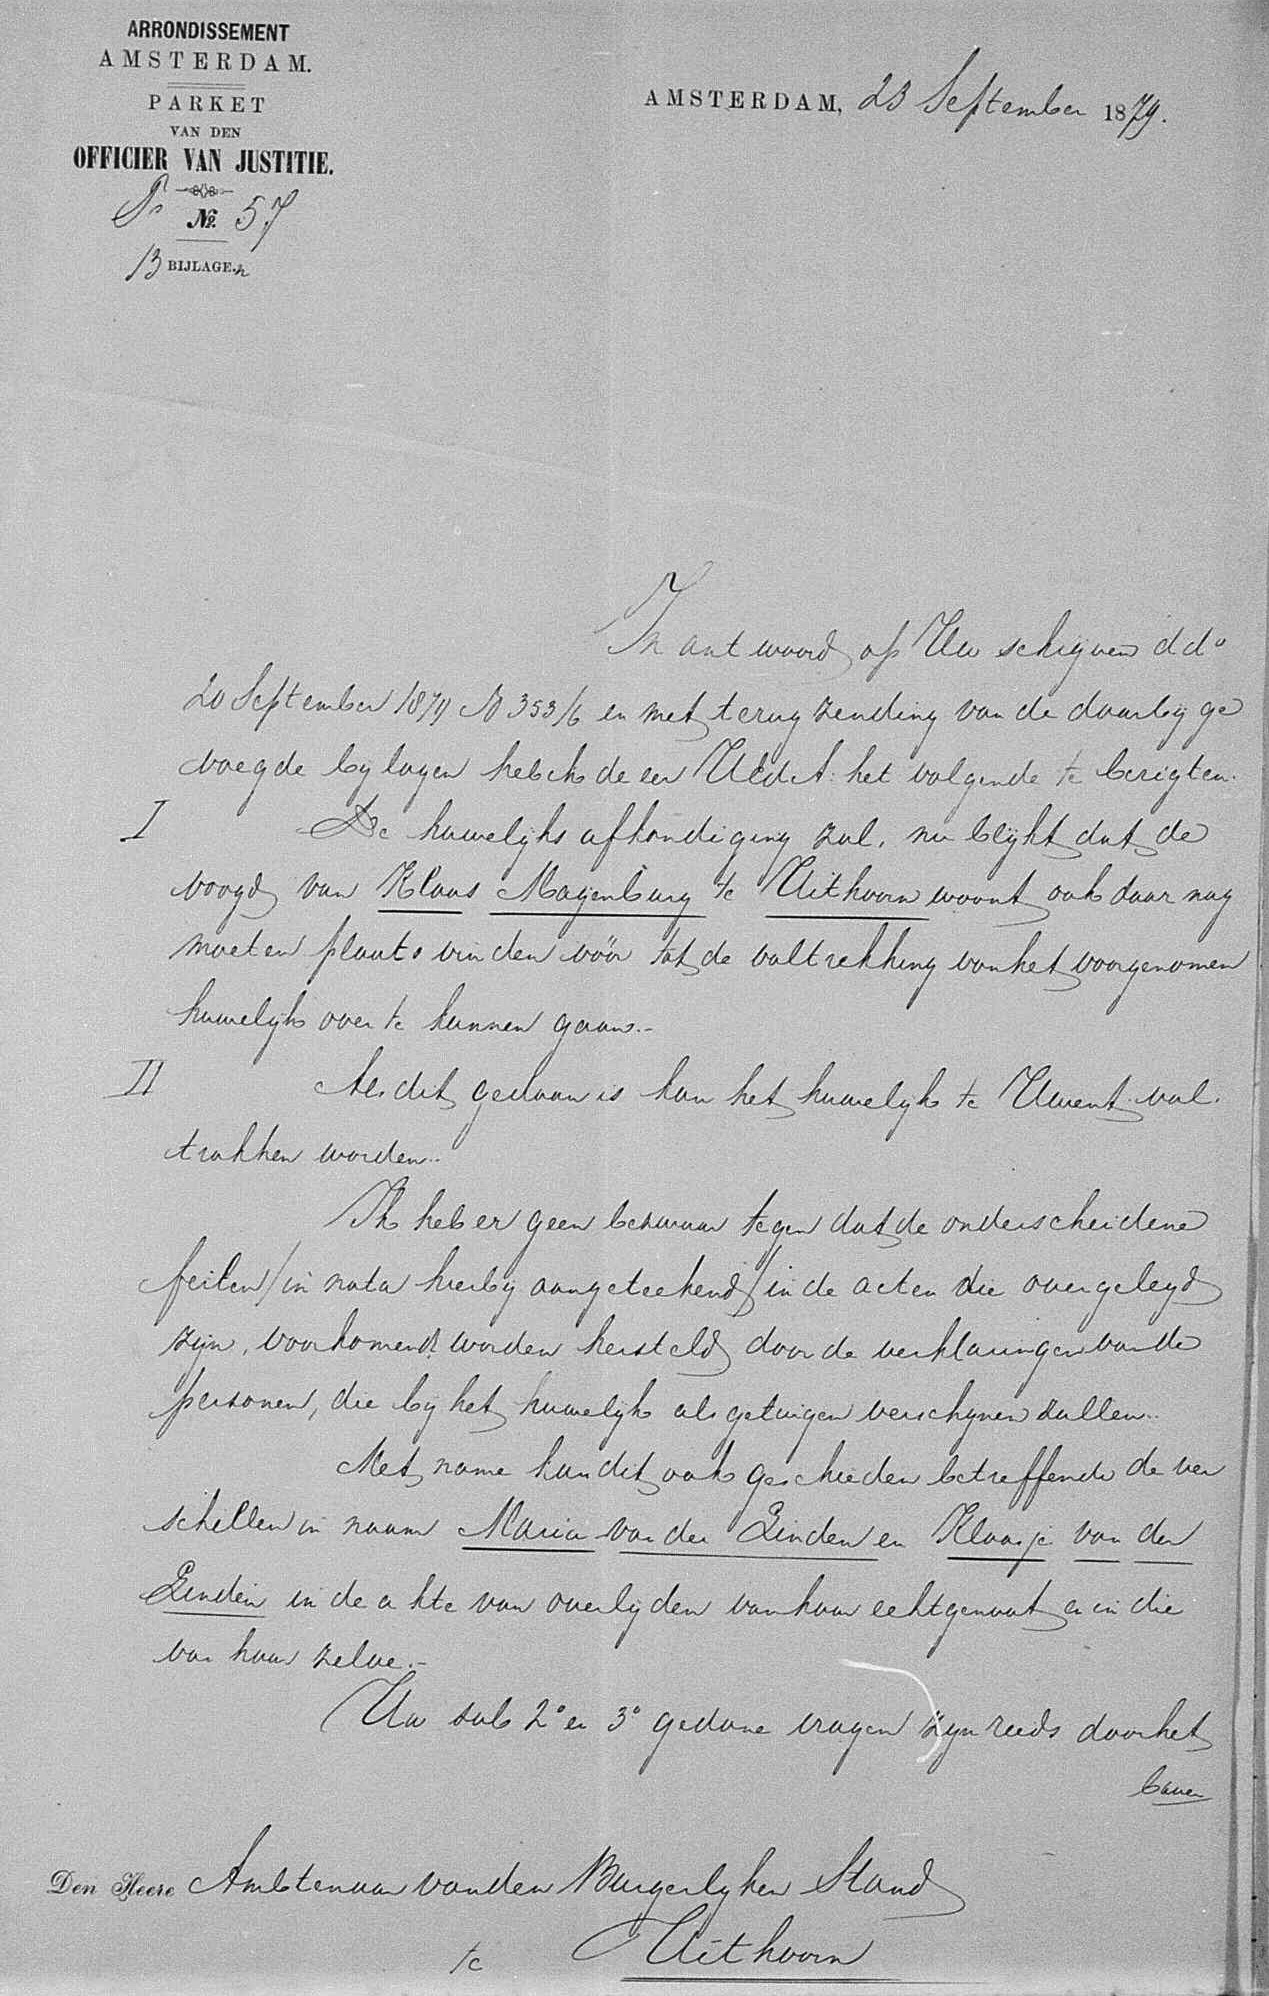 ARRONDISSEMENT
AMSTERDAM.
PARKET
VAN DEN
OFFICIER VAN JUSTITIE.
No. 57
13 BIJLAGEn
AMSTERDAM, 23 September 1879.
In antwoord op Uw schrijven ddo
20 September 1879 No 353/6 en met terugzending van de daarbij ge
voegde bylagen heb ik de eer UEdA: het volgende te berigten.
I De huwelijks afkondiging zal, nu blijkt dat de
voogd van Klaas Mayenburg te Uithoorn woont ook daar nog
moeten plaats vinden vóór tot de voltrekking van het voorgenomen
huwelijk over te kunnen gaan.-
II Als dit gedaan is kan het huwelijk te Uwent vol
trokken worden.
Ik heb er geen bezwaar tegen dat de onderscheidene
feilen/in nota hierbij aangeteekend/in de acten die overgelegd
zijn, voorkomend worden hersteld door de verklaringen van de
personen, die bij het huwelijk als getuigen verschijnen zullen.
Met name kan dit ook geschieden betreffende de ver
schillen in naam Maria van der Linden en Klaasje van der
Linden in de akte van overlijden van haar echtgenoot en in die
van haar zelve.-
Uw sub 2o en 3o gedane vragen zijn reeds door het
boven
Den Heere Ambtenaar van den Burgerlyken Stand
te Uithoorn